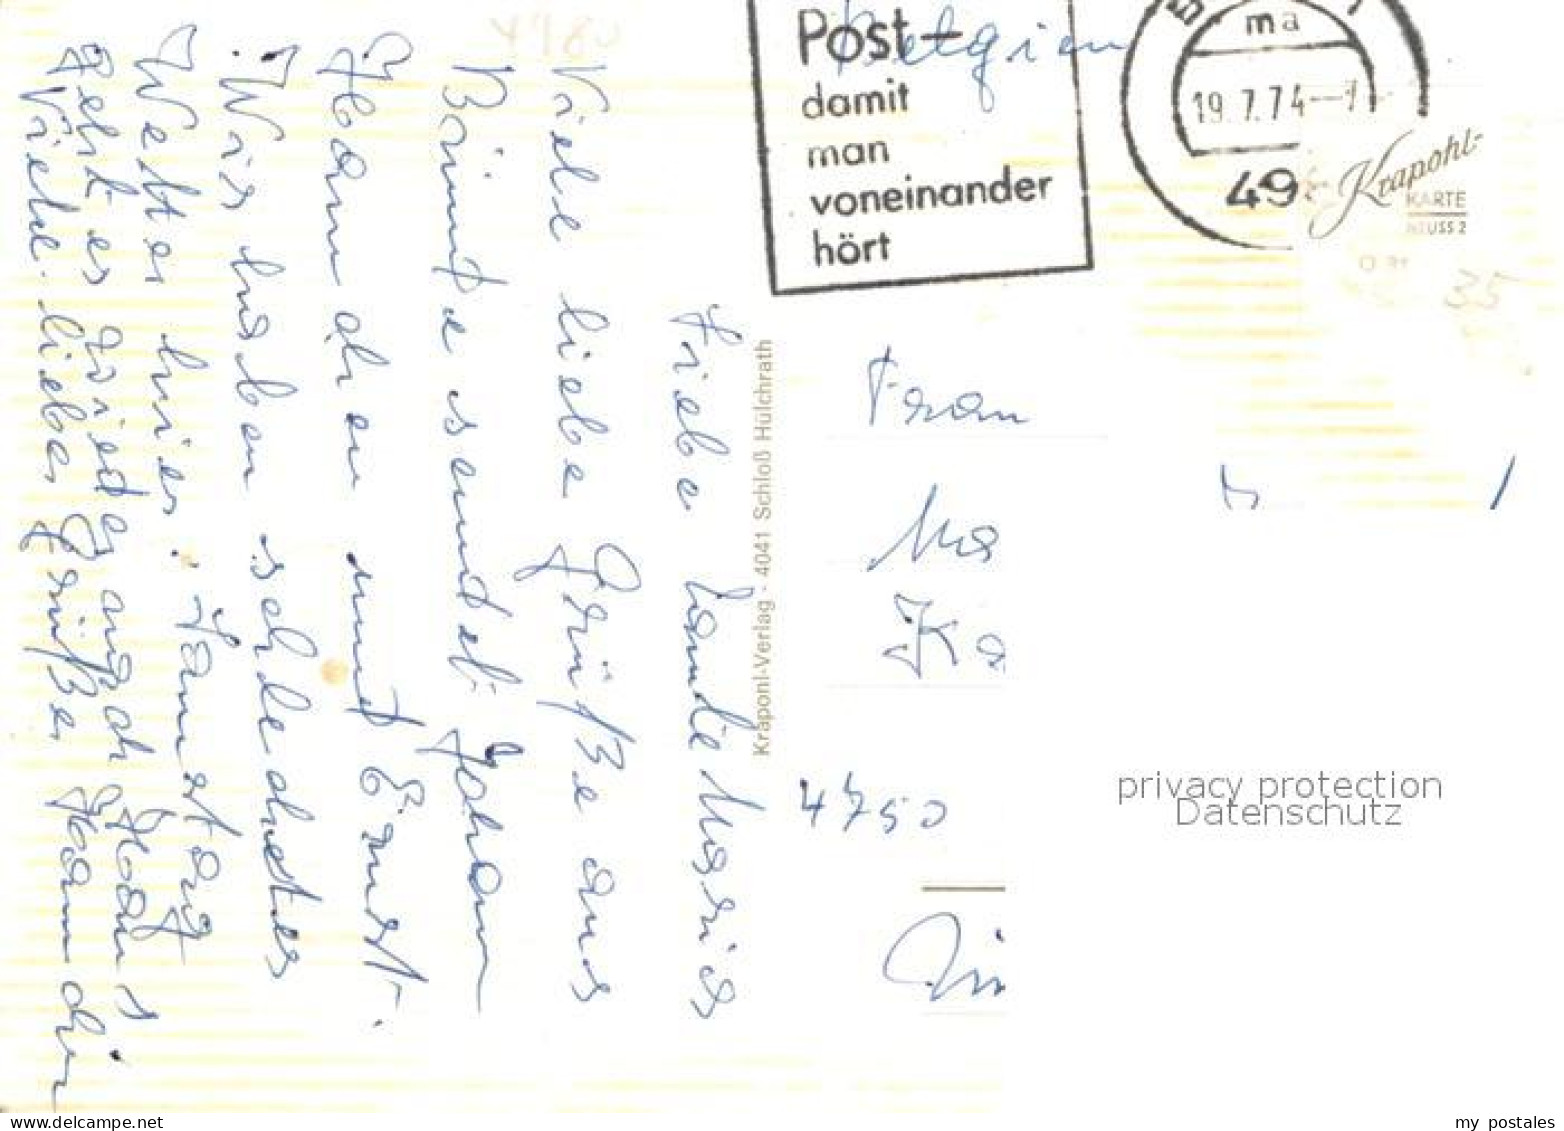 Liebe Tante Maria
Viele liebe Grüße aus
Bünde sendet Johann
Hannchen und Ernst.
Wir haben schlechtes
Wetter hier. Samstag
geht es wieder nach Haus
Viele liebe Grüße Hann dir
Belgien
Post-
damit
man
voneinander
hört
ma
19.7.74
49
Krapohl-
KARTE
NEUSS 2
35
Krapohl-Verlag · 4041 Schloß Hülchrath
Frau
Ma
Ka
4750
privacy protection
Datenschutz
www.delcampe.net
my_postales